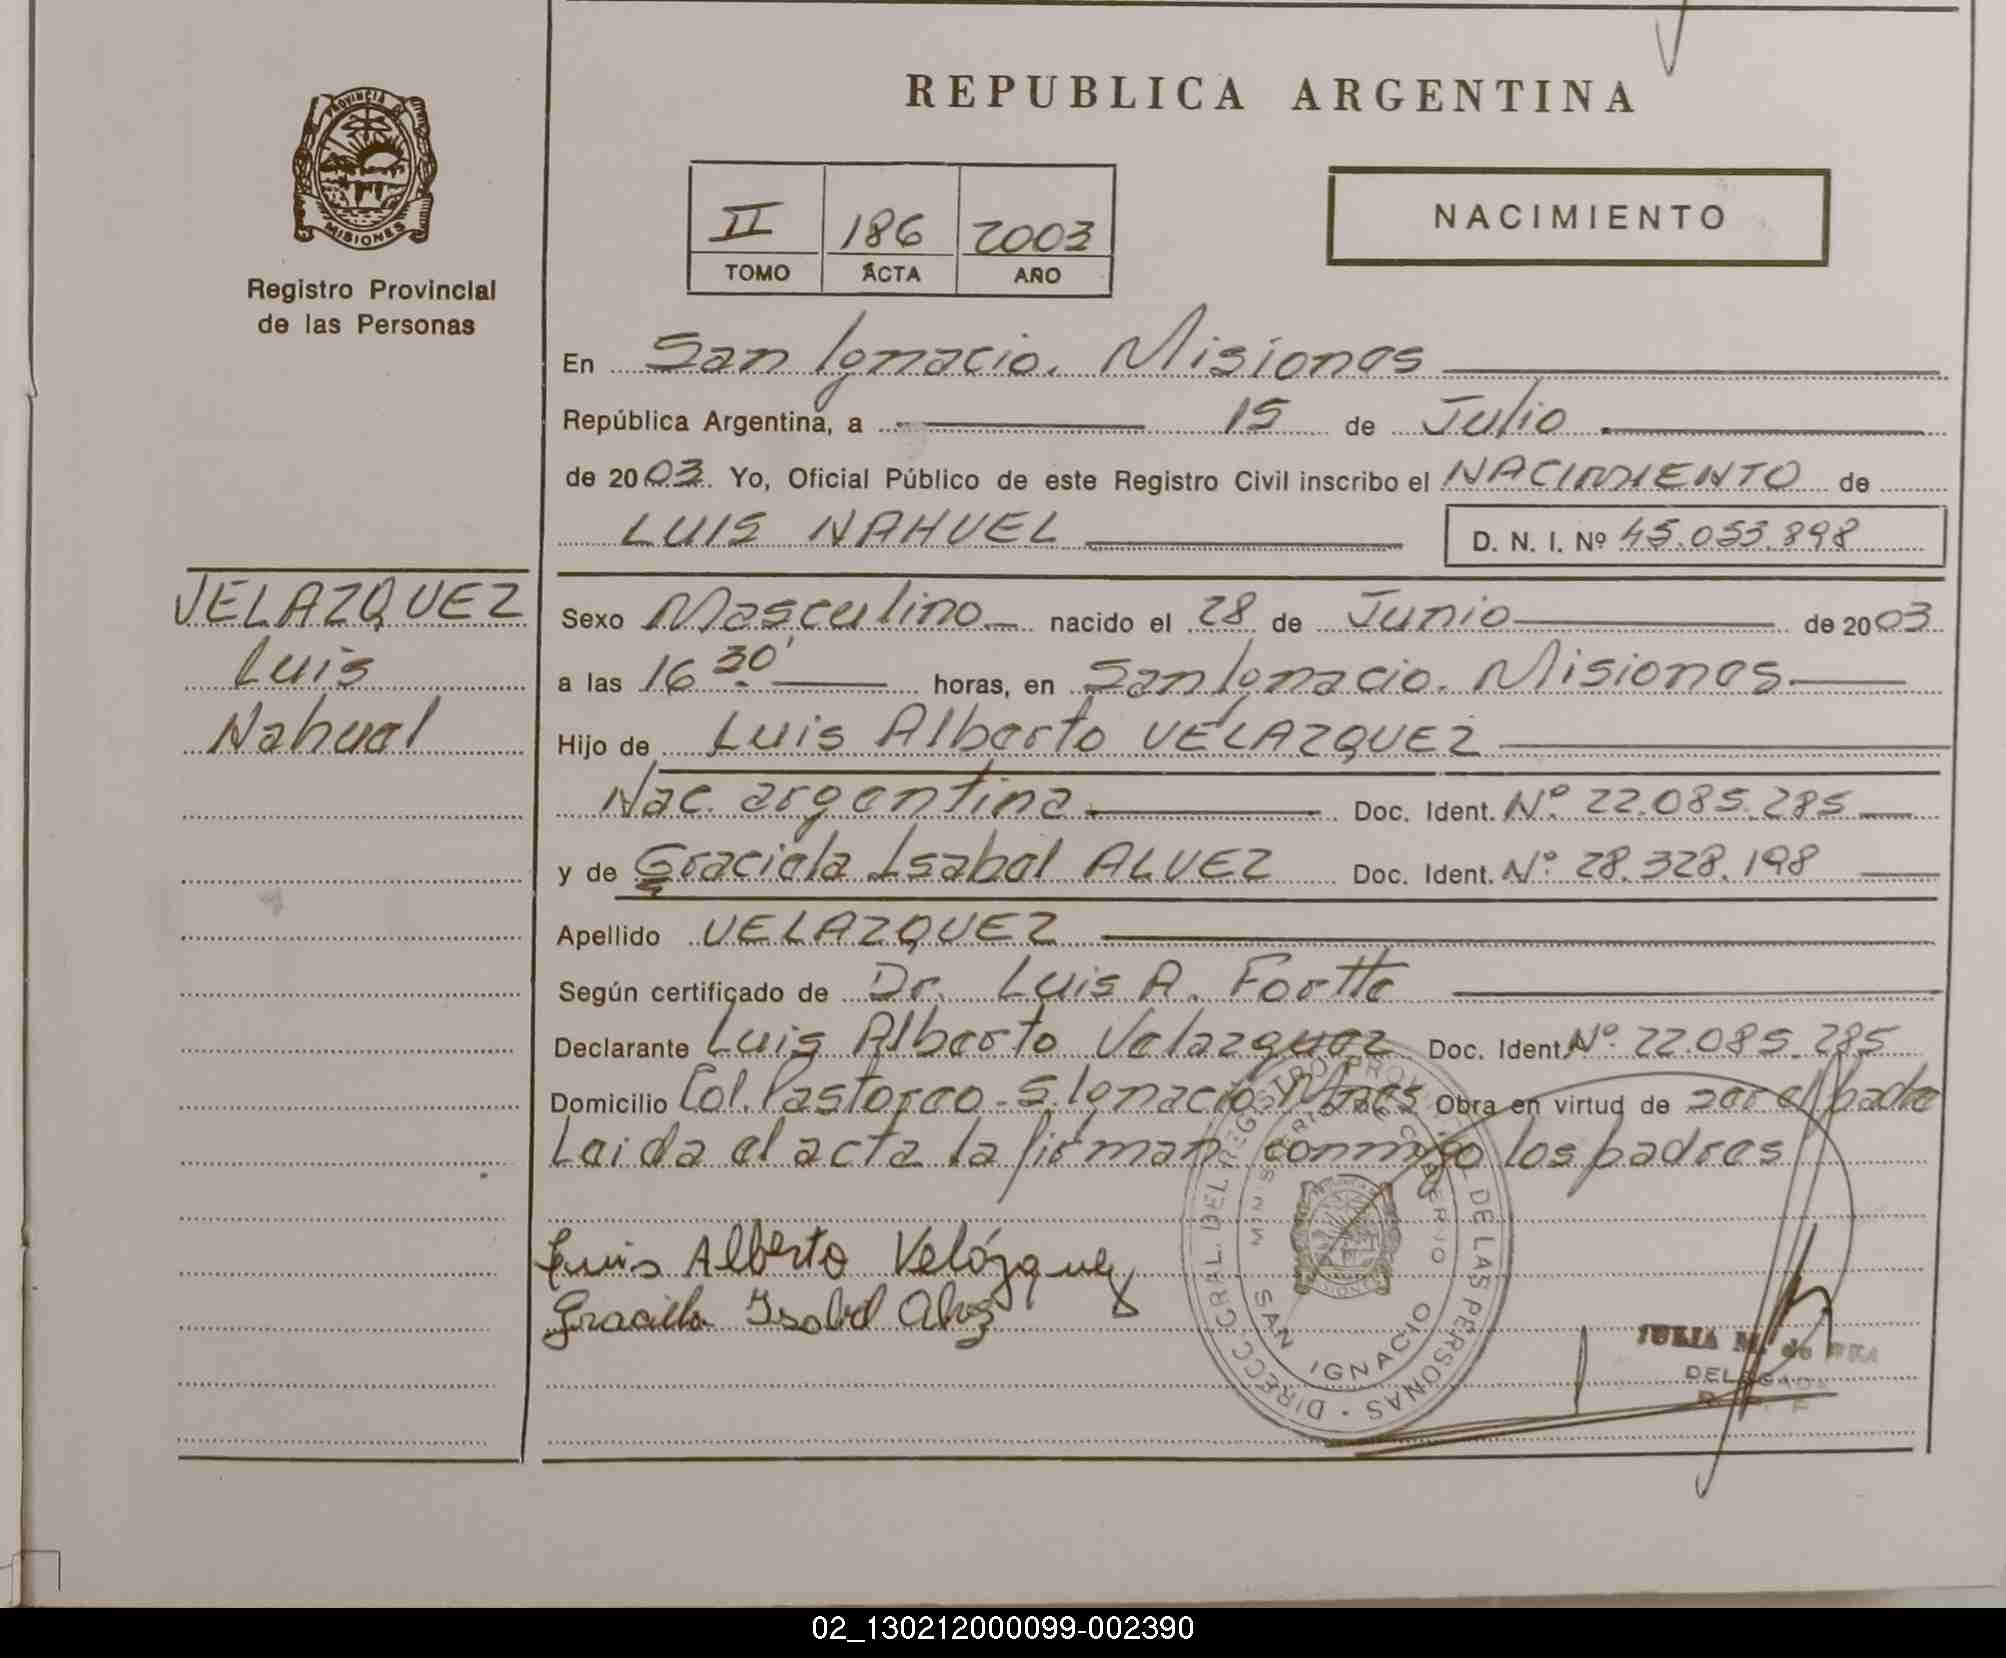 REPUBLICA ARGENTINA
PROVINCIA DE
MISIONES
Registro Provincial
de las Personas
II 186 2003
TOMO ACTA AÑO
NACIMIENTO
En San Ignacio. Misiones
República Argentina, a 15 de Julio
de 2003. Yo, Oficial Público de este Registro Civil inscribo el NACIMIENTO de
LUIS NAHUEL D. N. I. Nº 45.053.898
VELAZQUEZ
Luis
Nahuel
Sexo Masculino nacido el 28 de Junio de 2003
a las 16 30' horas, en San Ignacio. Misiones
Hijo de Luis Alberto VELAZQUEZ
Nac. argentina Doc. Ident. Nº 22.085.285
y de Graciela Isabel ALVEZ Doc. Ident. Nº 28.328.198
Apellido VELAZQUEZ
Según certificado de Dr. Luis A. Fortte
Declarante Luis Alberto Velazquez Doc. Ident. Nº 22.085.285
Domicilio Col. Pastoreo - S. Ignacio Mnes Obra en virtud de ser el padre
Leida el acta la firman conmigo los padres
Luis Alberto Velázquez
Graciela Isabel Alvez
DIRECC. GRAL. DEL REGISTRO PROV. DE LAS PERSONAS
MINISTERIO DE GOBIERNO
SAN IGNACIO
JULIA M. de
DELEGADA
02_130212000099-002390